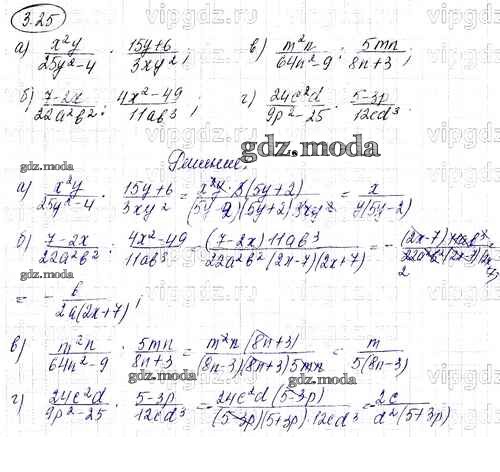 3.25
а) x²y / 25y²-4 · 15y+6 / 3xy² ; в) m²n / 64n²-9 : 5mn / 8n+3 ;
б) 7-2x / 22a²b² : 4x²-49 / 11ab³ ; г) 24c²d / 9p²-25 · 5-3p / 12cd³ .
gdz.moda
Решение.
gdz.moda
а) x²y / 25y²-4 · 15y+6 / 3xy² = x²y·3(5y+2) / (5y-2)(5y+2)3xy² = x / y(5y-2)
б) 7-2x / 22a²b² : 4x²-49 / 11ab³ = (7-2x)11ab³ / 22a²b²(2x-7)(2x+7) = -
= - b / 2a(2x+7) ;
gdz.moda
в) m²n / 64n²-9 : 5mn / 8n+3 = m²n(8n+3) / (8n-3)(8n+3)5mn = m / 5(8n-3)
gdz.moda
г) 24c²d / 9p²-25 · 5-3p / 12cd³ = 24c²d(5-3p) / (5-3p)(5+3p)·12cd³ = 2c / d²(5+3p)
vipgdz.com